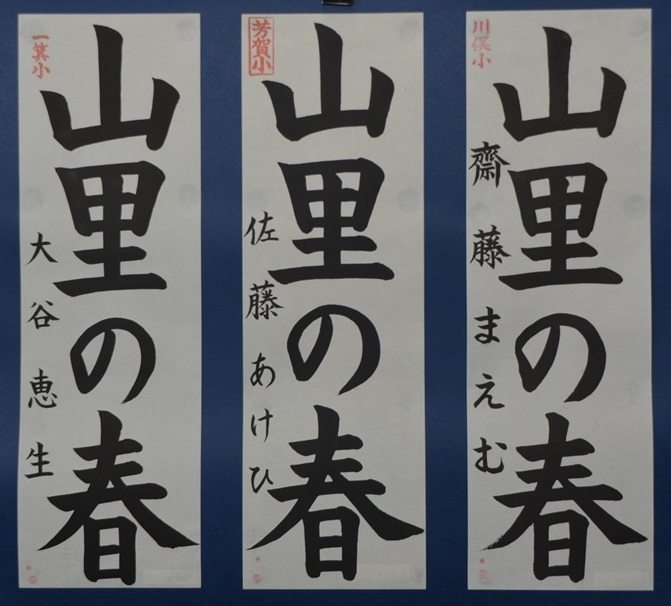 川俣小
山里の春
齋藤まえむ
芳賀小
山里の春
佐藤あけひ
一箕小
山里の春
大谷恵生